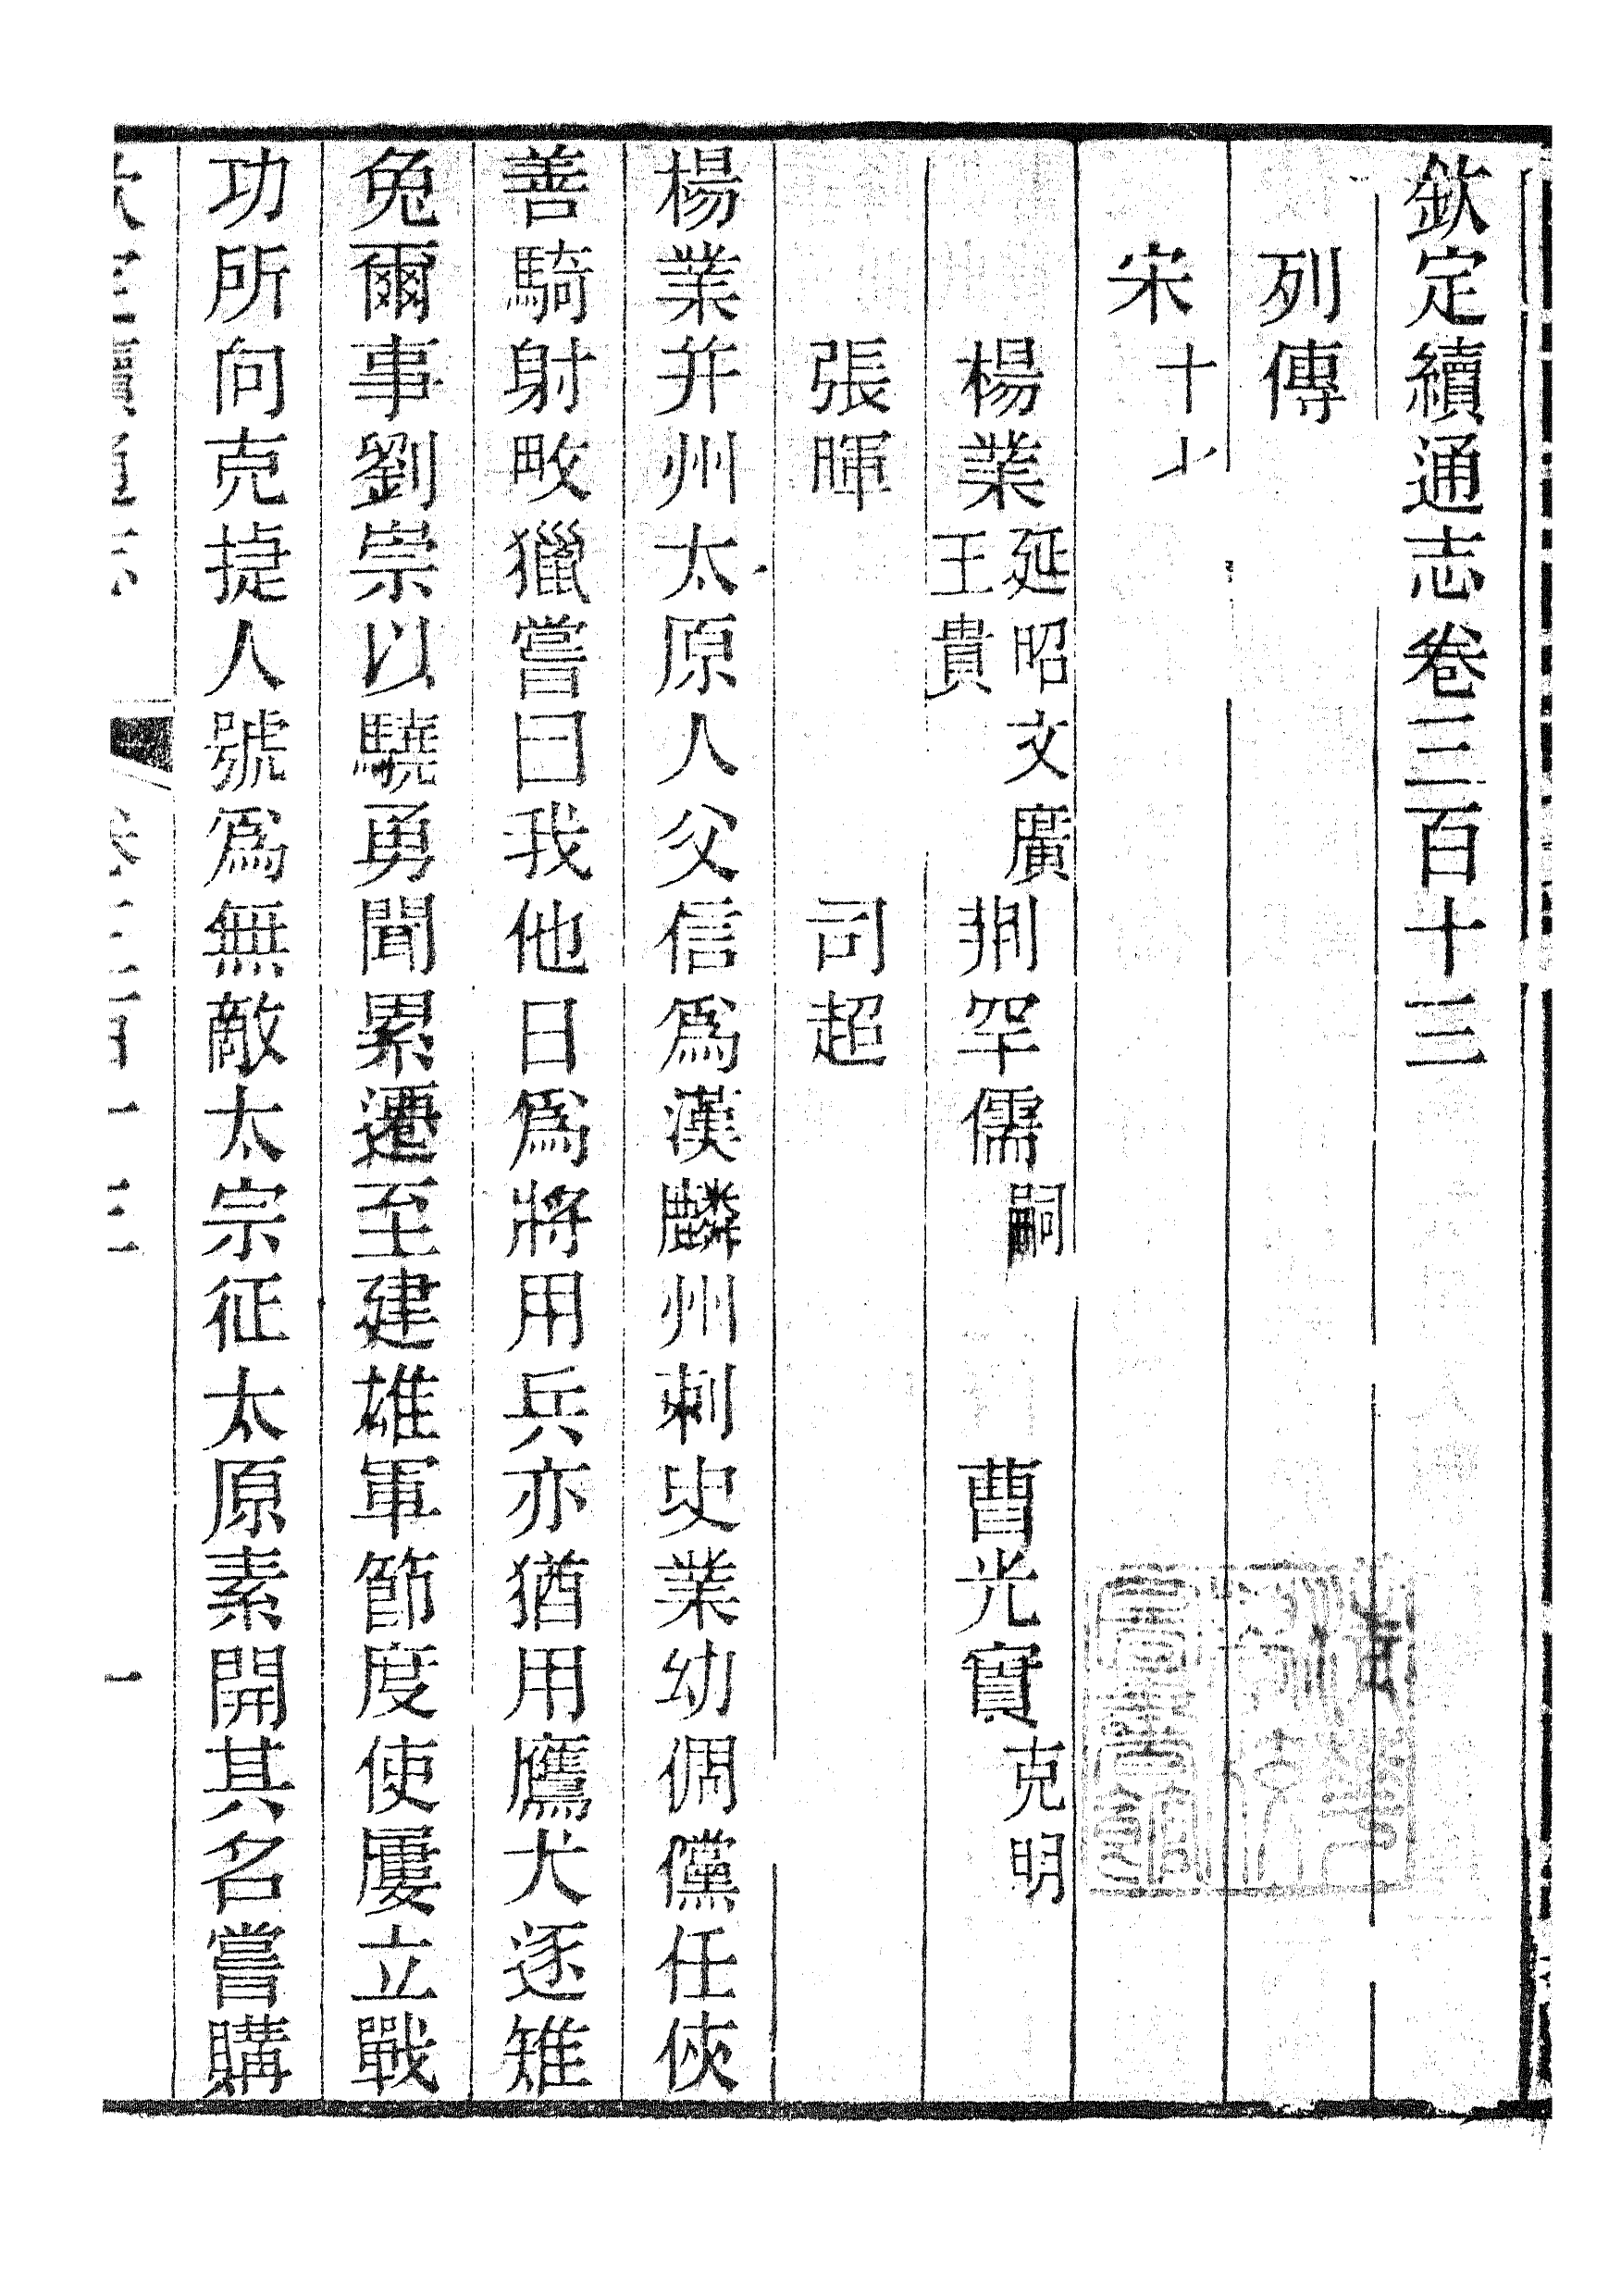 欽定續通志卷三百十三
列傳
宋十
楊業延昭文廣王貴 荆罕儒嗣 曹光實克明
張暉 司超
楊業并州太原人父信爲漢麟州刺史業幼倜儻任俠
善騎射畋獵嘗曰我他日爲將用兵亦猶用鷹犬逐雉
兔爾事劉崇以驍勇聞累遷至建雄軍節度使屢立戰
功所向克捷人號爲無敵太宗征太原素開其名嘗購